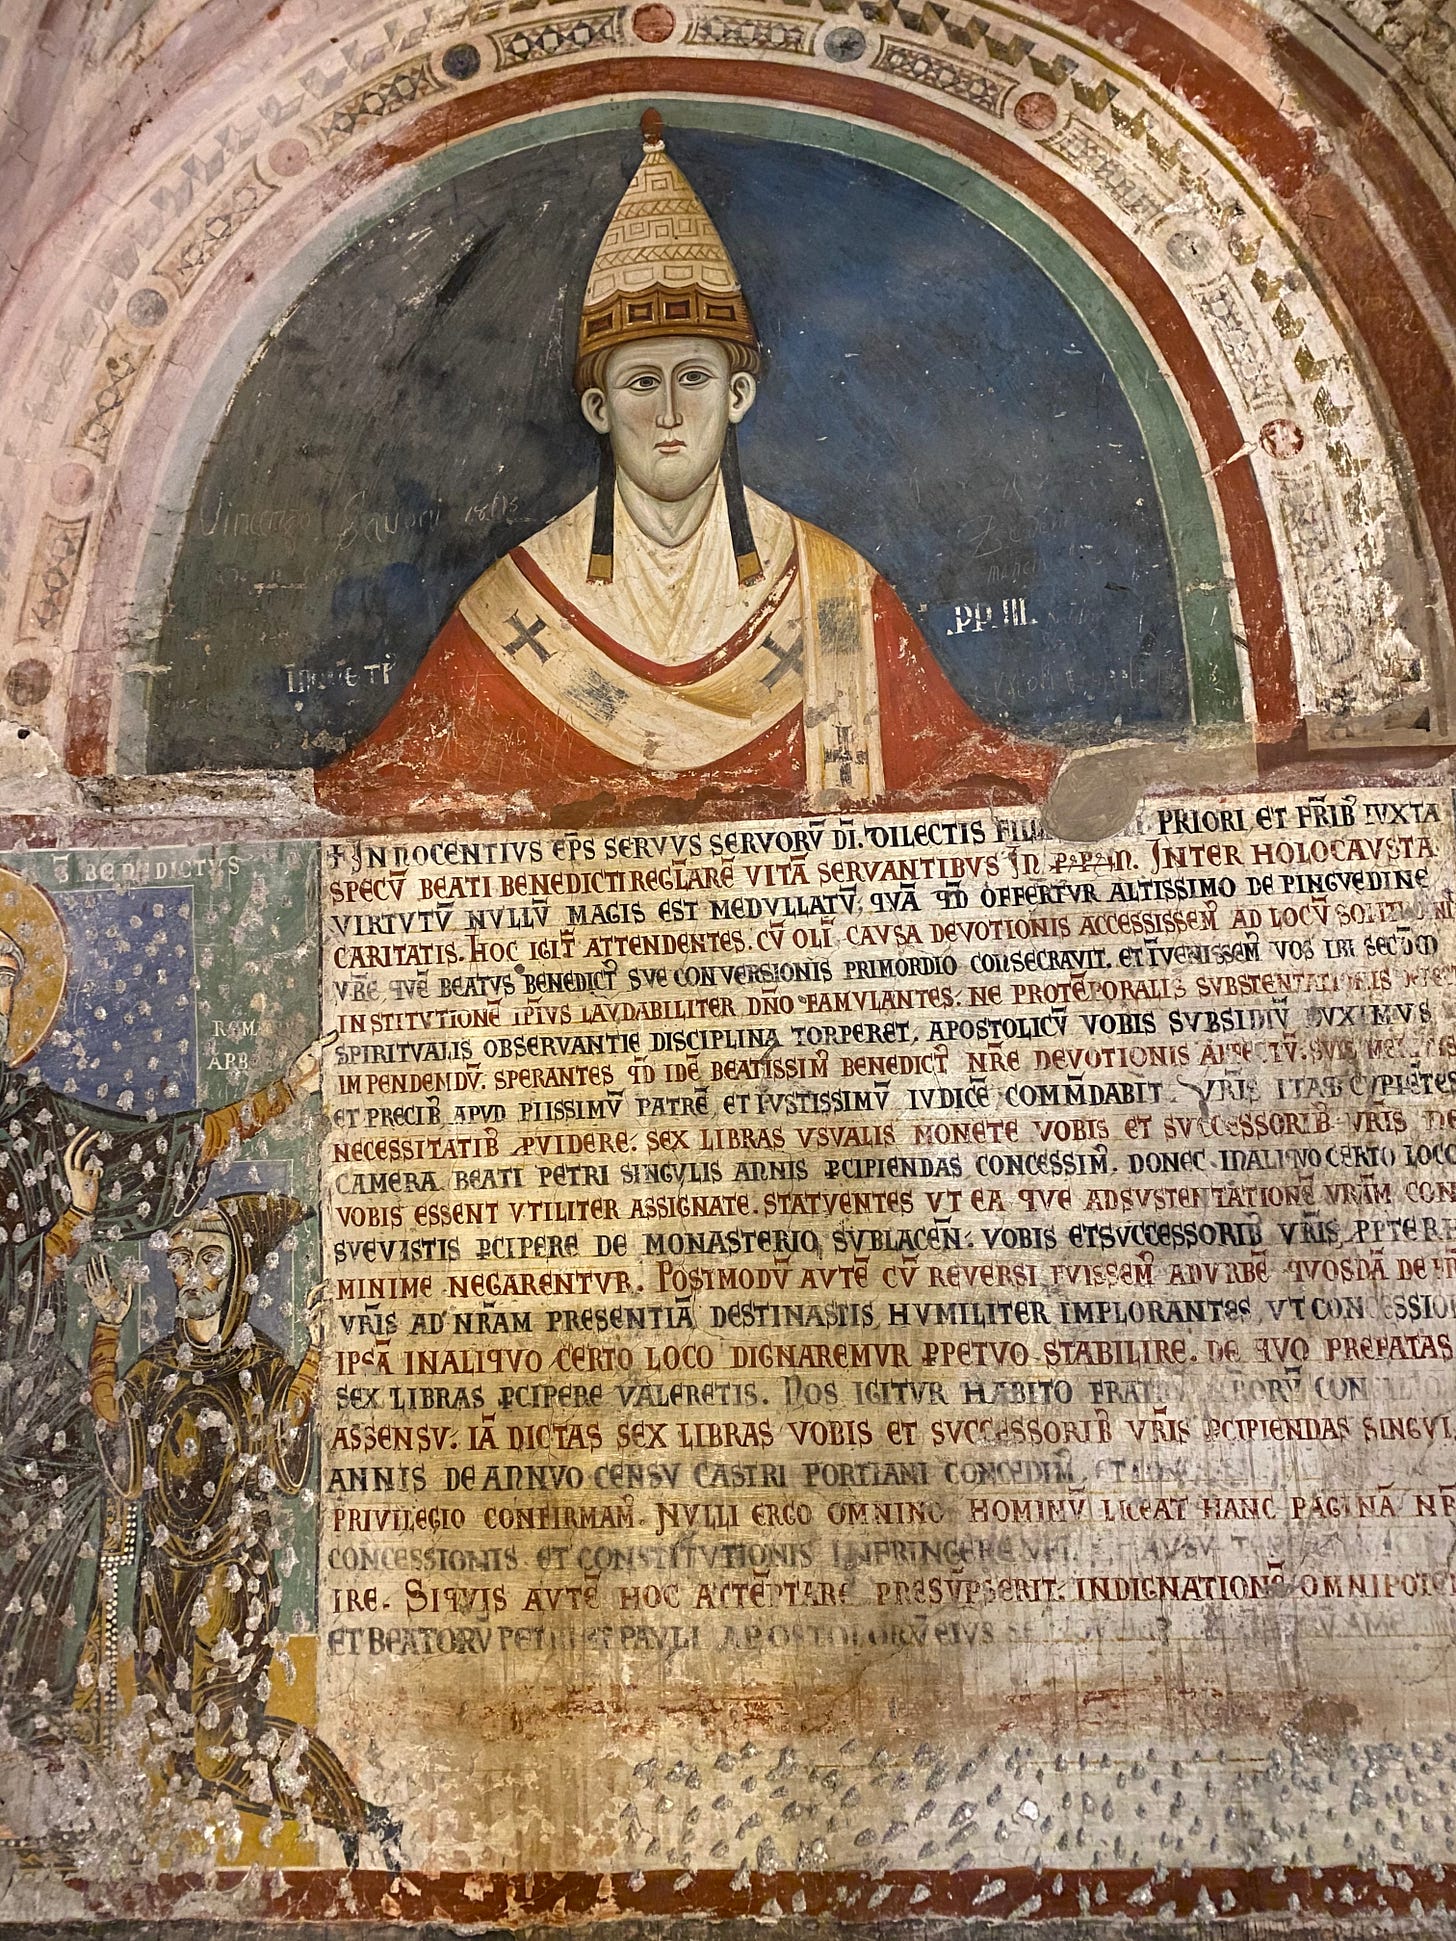 PP III
S BENEDICTUS
ROM
ABB
+ INNOCENTIVS EP̄S SERVVS SERVORŪ DĪ. DILECTIS PRIORI ET FR̄IB IVXTA
SPECŪ BEATI BENEDICTI REGLARĒ VITĀ SERVANTIBVS IN INTER HOLOCAVSTA
VIRTVTŪ NVLLŪ MAGIS EST MEDVLLATŪ, QVĀ QD̄ OFFERTVR ALTISSIMO DE PINGVEDINE
CARITATIS. HOC IGIT̄ ATTENDENTES. CŪ OLĪ CAVSA DEVOTIONIS ACCESSISSEM̄ AD LOCŪ
VR̄E, QVĒ BEATVS BENEDICT̄ SVE CONVERSIONIS PRIMORDIO CONSECRAVIT. ET ĪVENISSEM̄ VOS IBI SECD̄M
INSTITVTIONĒ IPĪVS LAVDABILITER DN̄O FAMVLANTES. NE PROTĒPORALIS
SPIRITVALIS OBSERVANTIE DISCIPLINA TORPERET, APOSTOLICŪ VOBIS SVBSIDIŪ DUXIMVS
IMPENDENDŪ. SPERANTES QD̄ IDĒ BEATISSIM̄ BENEDICT̄ NR̄E DEVOTIONIS
ET PRECIB̄ APVD PIISSIMŪ PATRĒ ET IVSTISSIMŪ IVDICĒ COMM̄DABIT. VR̄IS ITAQ CVPIĒTES
NECESSITATIB̄ PVIDERE. SEX LIBRAS VSVALIS MONETE VOBIS ET SVCCESSORIB̄ VR̄IS DE
CAMERA BEATI PETRI SINGVLIS ANNIS PCIPIENDAS CONCESSIM̄. DONEC INALIQVO CERTO LOCO
VOBIS ESSENT VTILITER ASSIGNATE. STATVENTES VT EA QVE AD SVSTENTATIONĒ VRĀM CON
SVEVISTIS PCIPERE DE MONASTERIO SVBLACEN̄. VOBIS ET SVCCESSORIB̄ VR̄IS PPTEREA
MINIME NEGARENTVR. POSTMODŪ AVTĒ CŪ REVERSI FVISSEM̄ AD VRBĒ QVOSDĀ DE
VR̄IS AD NR̄AM PRESENTIĀ DESTINASTIS, HVMILITER IMPLORANTES, VT CONCESSION
IPSĀ INALIQVO CERTO LOCO DIGNAREMVR PPETVO STABILIRE. DE QVO PREFATAS
SEX LIBRAS PCIPERE VALERETIS. NOS IGITVR HABITO
ASSENSV. IĀ DICTAS SEX LIBRAS VOBIS ET SVCCESSORIB̄ VR̄IS PCIPIENDAS SINGVL
ANNIS DE ANNVO CENSV CASTRI PORTIANI CONCEDIM̄
PRIVILEGIO CONFIRMAM̄. NVLLI ERGO OMNINO HOMINŪ LICEAT HANC PAGINĀ NR̄
CONCESSIONIS ET CONSTITVTIONIS INFRINGERE
IRE. SIQVIS AVTĒ HOC ATTĒPTARE PRESVPSERIT. INDIGNATIONĒ OMNIPOTE
ET BEATORV PETRI ET PAVLI APOSTOLORV EIVS